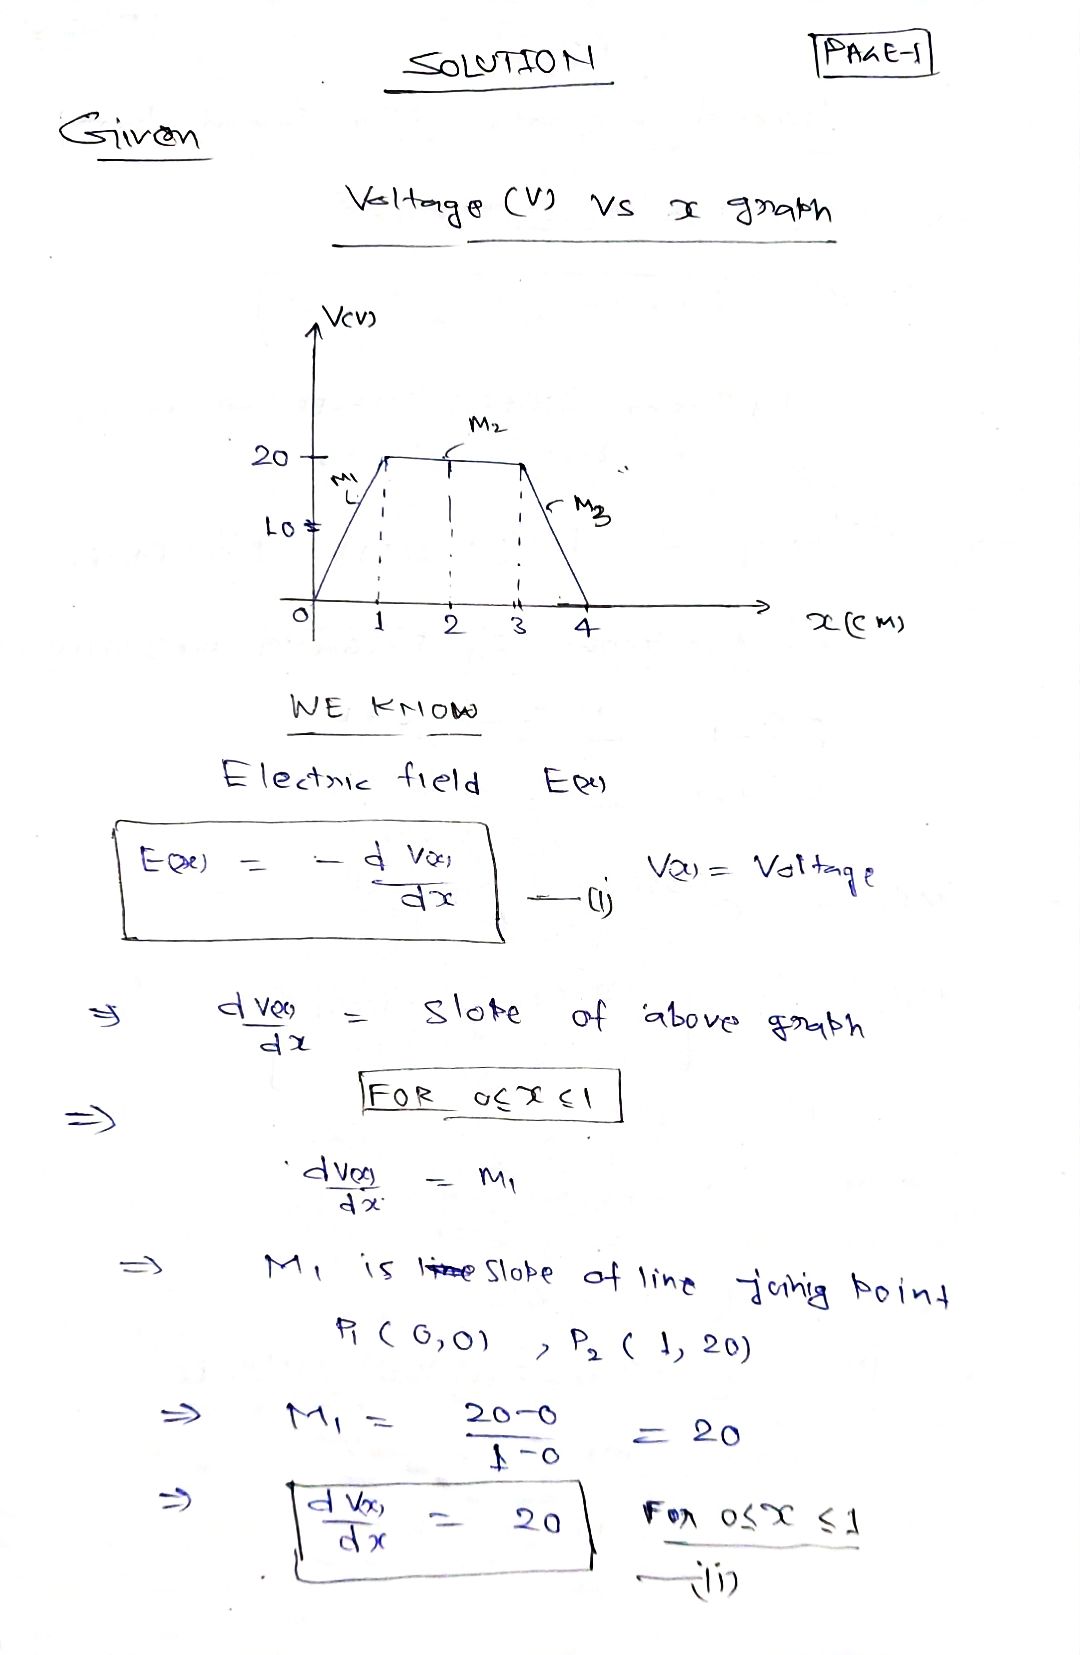 SOLUTION
PAGE-1
Given
Voltage (V) vs x graph
V(V)
M2
20
M1
M3
10
0 1 2 3 4
x(CM)
WE KNOW
Electric field E(x)
E(x) = - d V(x) / dx —(i) V(x) = Voltage
⇒ d V(x) / dx = Slope of above graph
⇒ FOR 0≤x≤1
dV(x) / dx = M1
⇒ M1 is line Slope of line joinig point
P1 (0,0) , P2 (1, 20)
⇒ M1 = 20-0 / 1-0 = 20
⇒ d V(x) / dx = 20 For 0≤x≤1
—(ii)